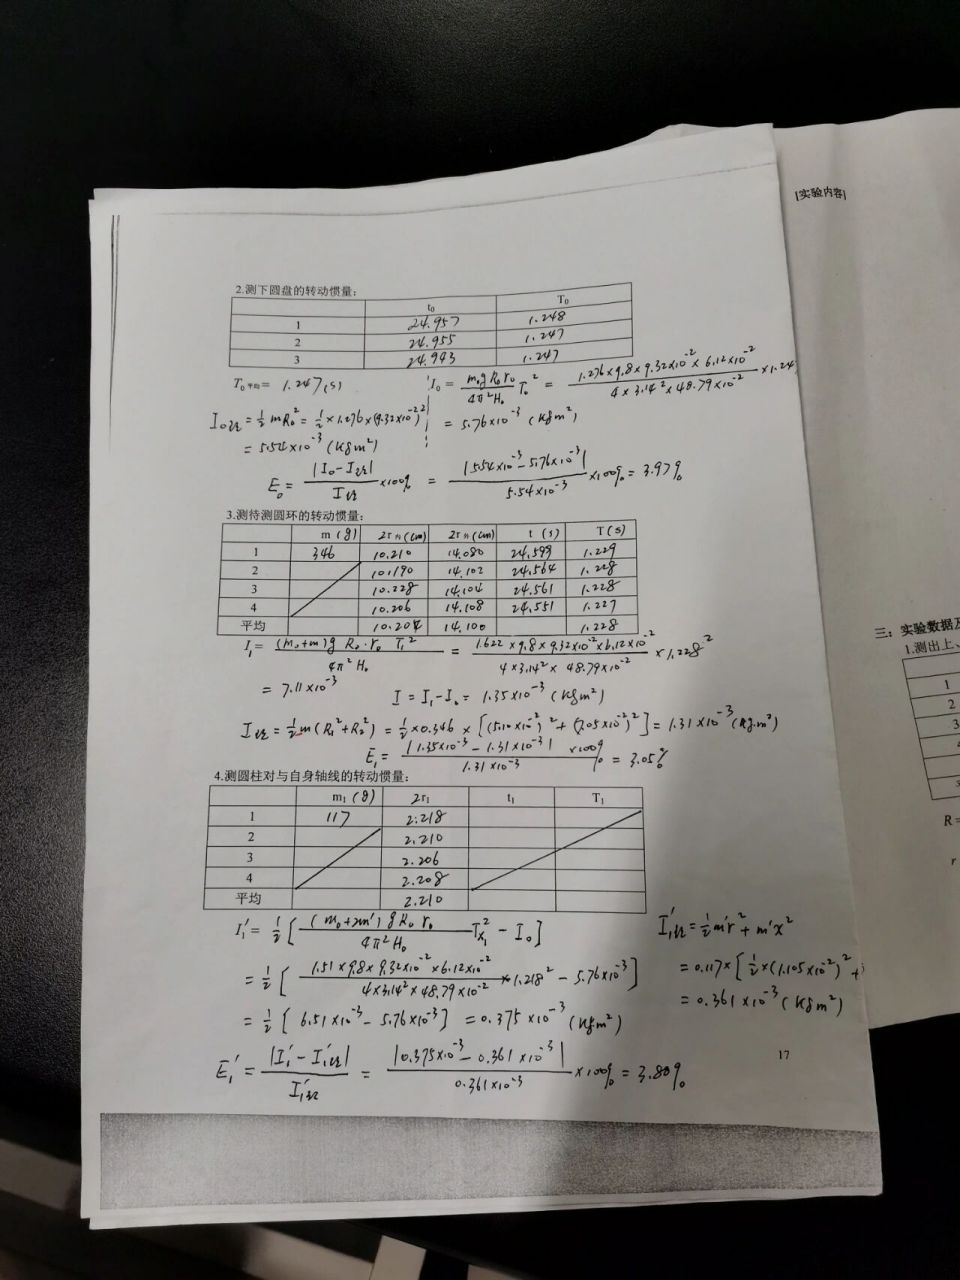 [实验内容]
2.测下圆盘的转动惯量:
t₀ T₀
1 24.957 1.248
2 24.955 1.247
3 24.943 1.247
T₀平均= 1.247(s) I₀ = m₀gR₀r₀/4π²H₀ T₀² = 1.276×9.8×9.32×10⁻²×6.12×10⁻²/4×3.14²×48.79×10⁻² ×1.24
I₀理=½mR₀²=½×1.276×(9.32×10⁻²)² = 5.76×10⁻³ (kgm²)
= 5.54×10⁻³ (kgm²)
E₀ = |I₀-I理|/I理 ×100% = |5.54×10⁻³-5.76×10⁻³|/5.54×10⁻³ ×100% = 3.97%
3.测待测圆环的转动惯量:
m(g) 2r内(cm) 2r外(cm) t(s) T(s)
1 346 10.210 14.080 24.599 1.229
2 10.190 14.102 24.564 1.228
3 10.228 14.104 24.561 1.228
4 10.206 14.108 24.551 1.227
平均 10.204 14.100 1.228
I₁= (m₀+m)gR₀·r₀T₁²/4π²H₀ = 1.622×9.8×9.32×10⁻²×6.12×10⁻²/4×3.14²×48.79×10⁻² ×1.228²
= 7.11×10⁻³ I = I₁-I₀ = 1.35×10⁻³ (kgm²)
I理=½m(R₁²+R₂²)=½×0.346×[(5.10×10⁻²)²+(7.05×10⁻²)²]=1.31×10⁻³(kg·m²)
E₁= |1.35×10⁻³-1.31×10⁻³|/1.31×10⁻³ ×100% = 3.05%
4.测圆柱对与自身轴线的转动惯量:
m₁(g) 2r₁ t₁ T₁
1 117 2.218
2 2.210
3 2.206
4 2.208
平均 2.210
I₁'= ½[(m₀+2m')gR₀r₀/4π²H₀ Tx₁² - I₀] I₁理'=½m'r²+m'x²
= ½[1.51×9.8×9.32×10⁻²×6.12×10⁻²/4×3.14²×48.79×10⁻² ×1.218² - 5.76×10⁻³] = 0.117×[½×(1.105×10⁻²)²+
= ½[6.51×10⁻³-5.76×10⁻³] = 0.375×10⁻³(kgm²) = 0.361×10⁻³(kgm²)
E₁' = |I₁'-I₁理'|/I₁理' = |0.375×10⁻³-0.361×10⁻³|/0.361×10⁻³ ×100% = 3.80%
17
三: 实验数据及
1.测出上、
1
2
3
R=
r